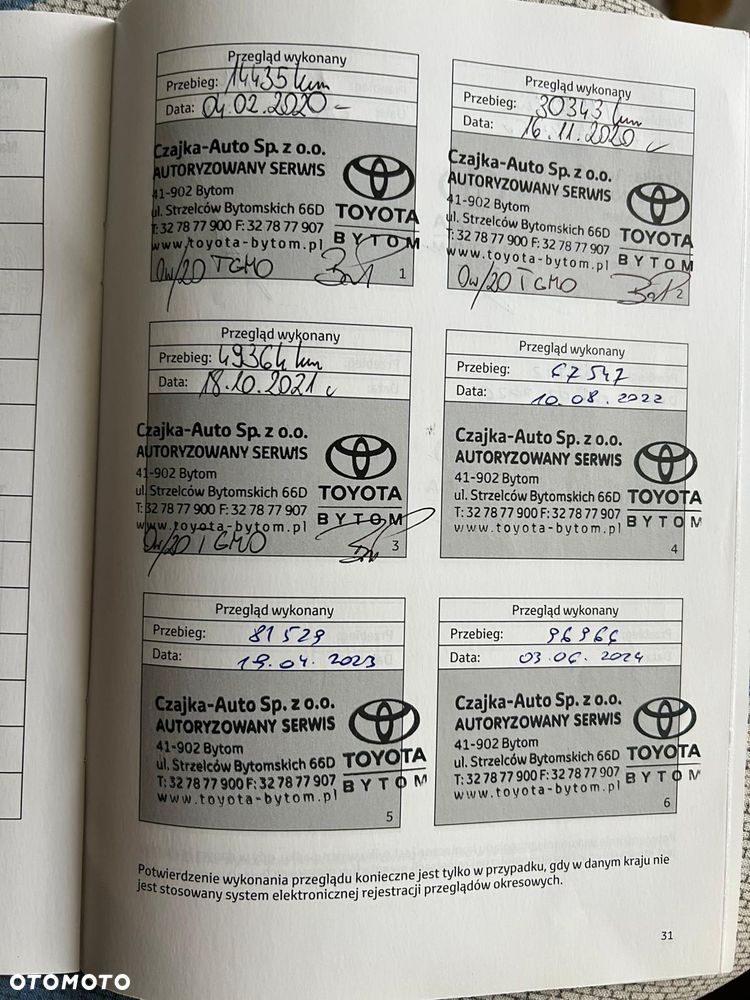 Przegląd wykonany
Przebieg: 14435 km
Data: 04.02.2020
Czajka-Auto Sp. z o.o.
AUTORYZOWANY SERWIS
41-902 Bytom
ul. Strzelców Bytomskich 66D
T: 32 78 77 900 F: 32 78 77 907
www.toyota-bytom.pl
TOYOTA
BYTOM
0w/20 TGMO
1
Przegląd wykonany
Przebieg: 30343 km
Data: 16.11.2020
Czajka-Auto Sp. z o.o.
AUTORYZOWANY SERWIS
41-902 Bytom
ul. Strzelców Bytomskich 66D
T: 32 78 77 900 F: 32 78 77 907
www.toyota-bytom.pl
TOYOTA
BYTOM
0w/20 TGMO
2
Przegląd wykonany
Przebieg: 49364 km
Data: 18.10.2021
Czajka-Auto Sp. z o.o.
AUTORYZOWANY SERWIS
41-902 Bytom
ul. Strzelców Bytomskich 66D
T: 32 78 77 900 F: 32 78 77 907
www.toyota-bytom.pl
TOYOTA
BYTOM
0w/20 TGMO
3
Przegląd wykonany
Przebieg: 67547
Data: 10.08.2022
Czajka-Auto Sp. z o.o.
AUTORYZOWANY SERWIS
41-902 Bytom
ul. Strzelców Bytomskich 66D
T: 32 78 77 900 F: 32 78 77 907
www.toyota-bytom.pl
TOYOTA
BYTOM
4
Przegląd wykonany
Przebieg: 81529
Data: 19.04.2023
Czajka-Auto Sp. z o.o.
AUTORYZOWANY SERWIS
41-902 Bytom
ul. Strzelców Bytomskich 66D
T: 32 78 77 900 F: 32 78 77 907
www.toyota-bytom.pl
TOYOTA
BYTOM
5
Przegląd wykonany
Przebieg: 96966
Data: 03.06.2024
Czajka-Auto Sp. z o.o.
AUTORYZOWANY SERWIS
41-902 Bytom
ul. Strzelców Bytomskich 66D
T: 32 78 77 900 F: 32 78 77 907
www.toyota-bytom.pl
TOYOTA
BYTOM
6
Potwierdzenie wykonania przeglądu konieczne jest tylko w przypadku, gdy w danym kraju nie
jest stosowany system elektronicznej rejestracji przeglądów okresowych.
31
OTOMOTO